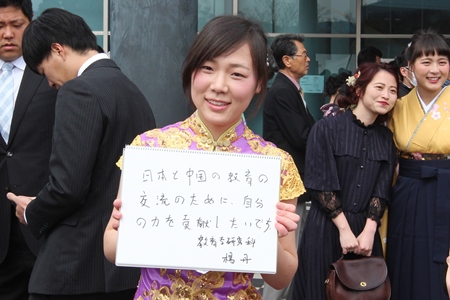 日本と中国の教育の
交流のために、自分
の力を貢献したいです
教育学研究科
楊 丹